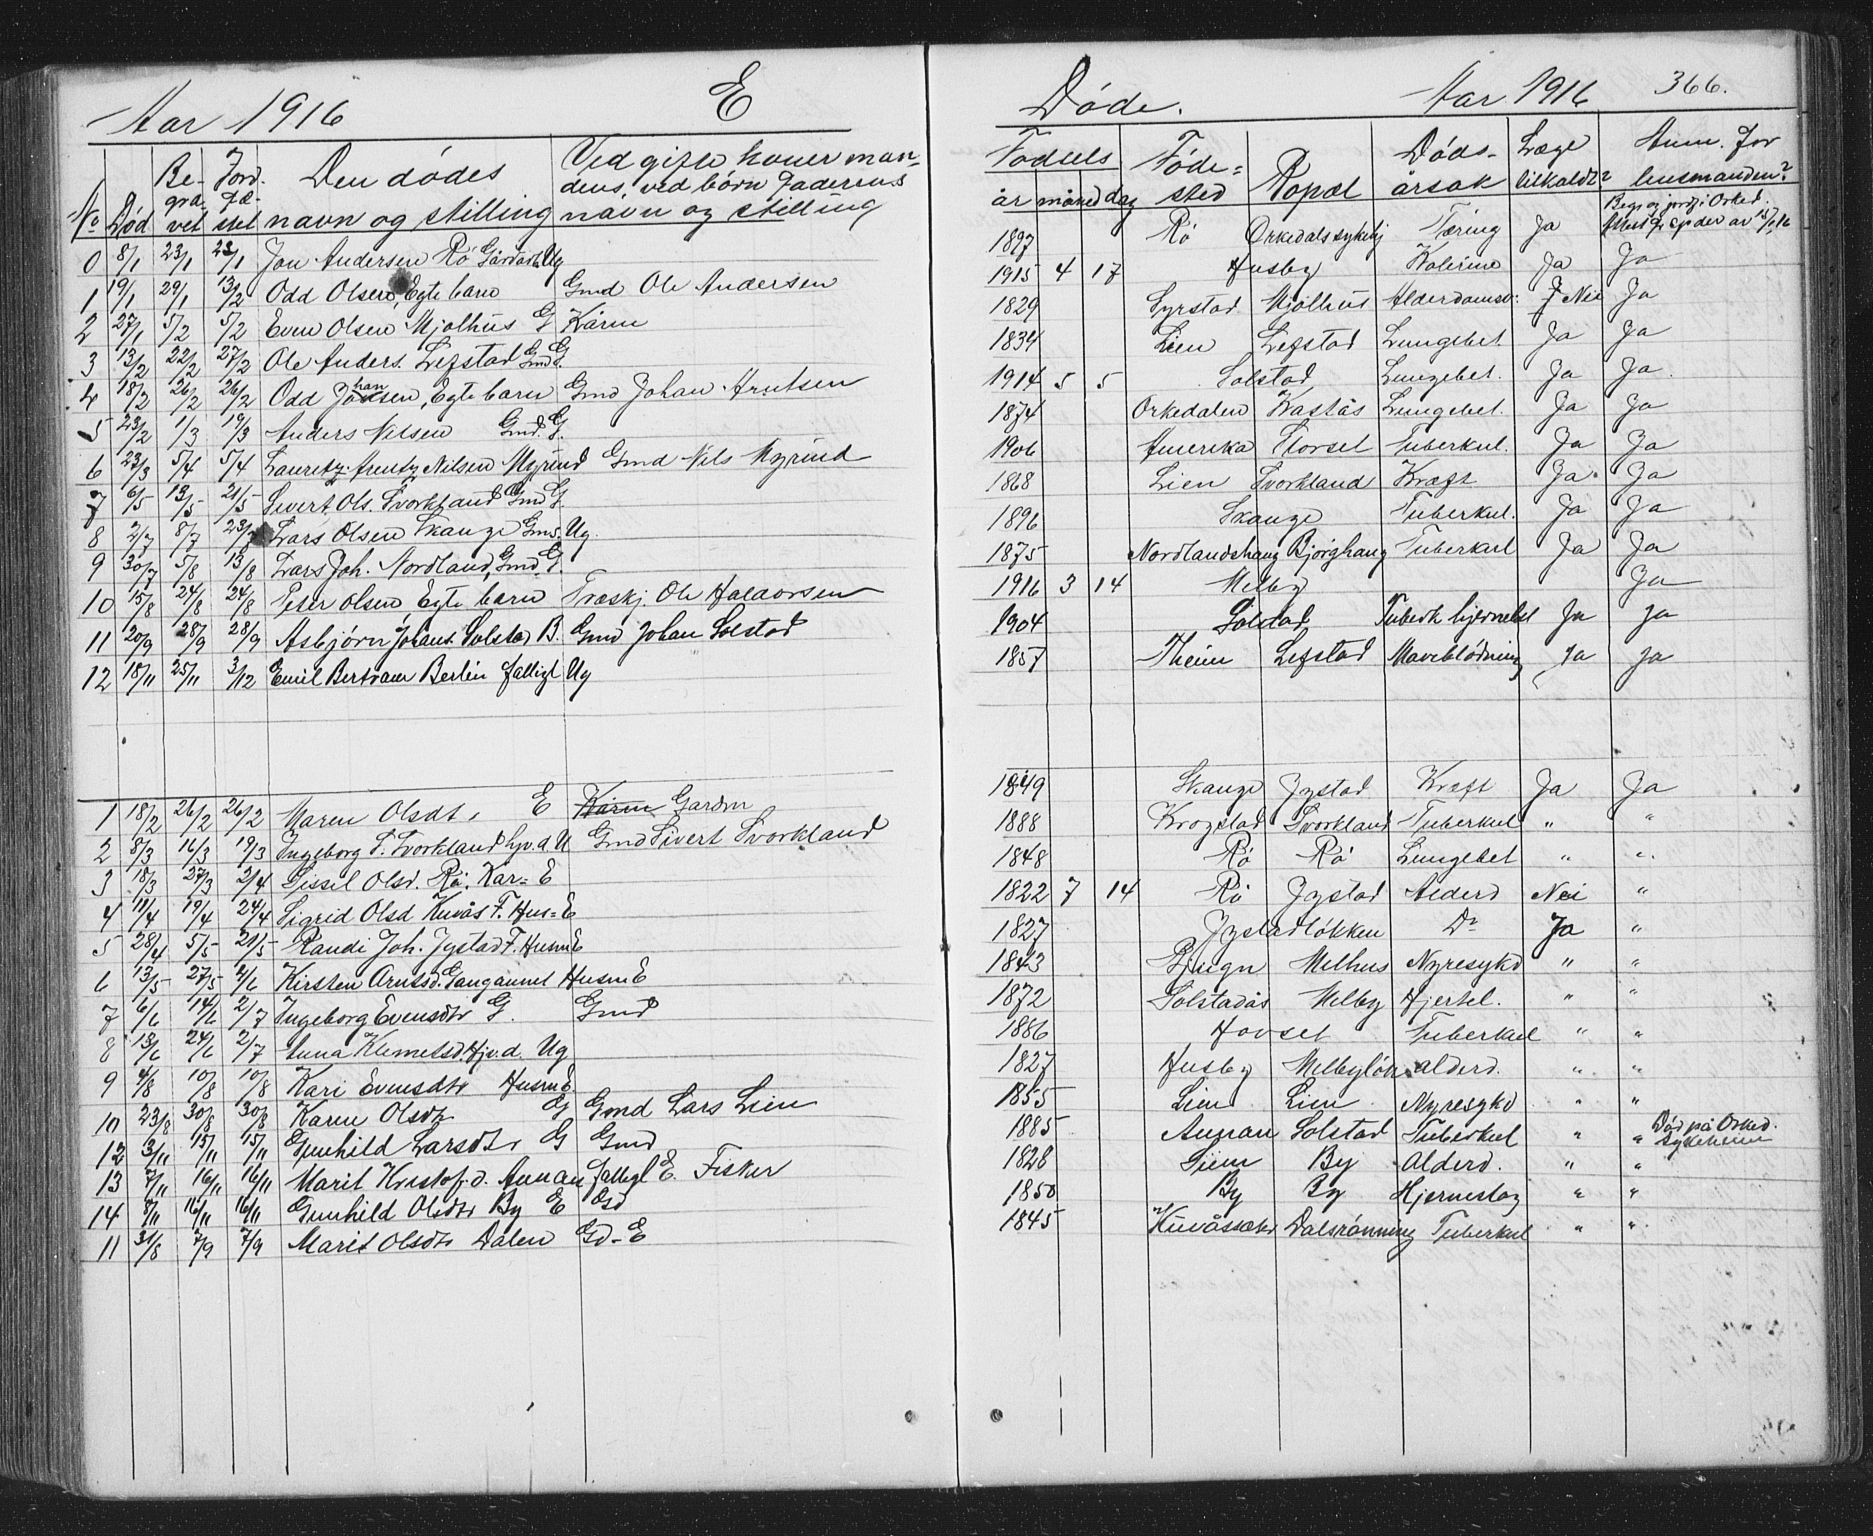 Aar 1916 E Døde. Aar 1916 366.
No Død Begravet Jordfæstet Den dødes navn og stilling Ved gifte koner mandens, ved børn Faderens navn og stilling Fødsels år måned dag Fødested Bopæl Dødsårsak Læge tilkaldt? Anm. for husmanden?
0 8/1 23/1 23/1 Jon Andersen Rø Ug 1897 Rø Orkedals sykehj Tæring Ja
1 19/1 29/1 13/2 Odd Olsen, Egte barn Gmd Ole Andersen 1915 4 17 Husby Kolerine Ja Ja
2 27/1 5/2 5/2 Even Olsen Mjølhus G Kårm 1829 Syrstad Mjølhus Alderdomsv: Nei Ja
3 13/2 22/2 27/2 Ole Anders. Lefstad Gmd G. 1834 Lien Lefstad Lungebet. Ja Ja
4 18/2 26/2 26/2 Odd Johansen, Egte barn Gmd Johan Arntsen 1914 5 5 Solstad Lungebet. Ja Ja.
5 23/2 1/3 19/3 Anders Nilsen Gmd. G. 1874 Orkedalen Kastås Lungebet. Ja Ja
6 23/3 5/4 5/4 Lauritz Arentz Nilsen Myrind Gmd Nils Myrind 1906 Amerika Storset Tuberkul. Ja Ja
7 6/5 13/5 21/5 Sivert Ols. Svorkland Gmd G. 1868 Lien Svorkland Kræft Ja Ja
8 2/7 8/7 23/7 Lars Olsen Skauge Gms. Ug. 1896 Skauge Tuberkul. Ja Ja
9 30/7 5/8 13/8 Lars Joh. Nordland, Gmd. G. 1875 Nordlandshaug Bjørghaug Tuberkul Ja Ja
10 15/8 24/8 24/8 Peter Olsen, Egte barn Træskj. Ole Haldorsen 1916 3 14 Melby Ja
11 20/9 28/9 28/9 Asbjørn Johans. Solstad B. Gmd Johan Solstad 1904 Solstad Tuberk hjernebet Ja Ja
12 18/11 25/11 3/12 Emil Bertram Berlin fattigl Ug 1857 Theim Lefstad Maveblødning Ja Ja
1 18/2 26/2 26/2 Maren Olsdt. E Karm Gardm 1849 Skauge Jystad Kræft Ja Ja
2 8/3 16/3 19/3 Ingeborg S. Svorkland hjv. d U Gmd Sivert Svorkland 1888 Krogstad Svorkland Tuberkul " "
3 18/3 27/3 2/4 Sissel Olsd. Rø. Kar= E 1848 Rø Rø Lungebet " "
4 11/4 19/4 24/4 Sigrid Olsd Kuvås F. Hus=E 1822 7 14 Rø Jystad Alderd Nei "
5 28/4 5/5 21/5 Randi Joh. Jystad F. Husm E 1827 Jystadløkken Do Ja "
6 13/5 27/5 4/6 Kirsten Arntsd. Husm E 1843 Bjugn Melhus Nyresykd " "
7 6/6 14/6 2/7 Ingeborg Evensdtr G. Gmd 1872 Solstadås Melby Hjertel. " "
8 13/6 24/6 2/7 Anna Klemetsd. Hjv.d. Ug 1886 Hovset Tuberkul " "
9 4/8 10/8 10/8 Kari Evensdtr Husm E. 1827 Husby Melbyløk alderd. " "
10 23/8 30/8 30/8 Karen Olsdtr G Gmd Lars Lien 1855 Lien Lien Nyresykd " "
12 3/11 15/11 15/11 Gunhild Larsdtr G Gmd 1885 Aunan Solstad Tuberkul " " Død på Orked. sykeheim
13 7/11 16/11 16/11 Marit Kristof.d. Aunan fattigl E. Fisker 1828 Siem By Alderd. " "
14 8/11 16/11 16/11 Gunhild Olsdtr By E Gd 1850 By By Hjerneslag " "
11 31/8 7/9 7/9 Marit Olsdtr Dalen Gd-E 1845 Kuvåssætr Dalsrønning Tuberkul " "